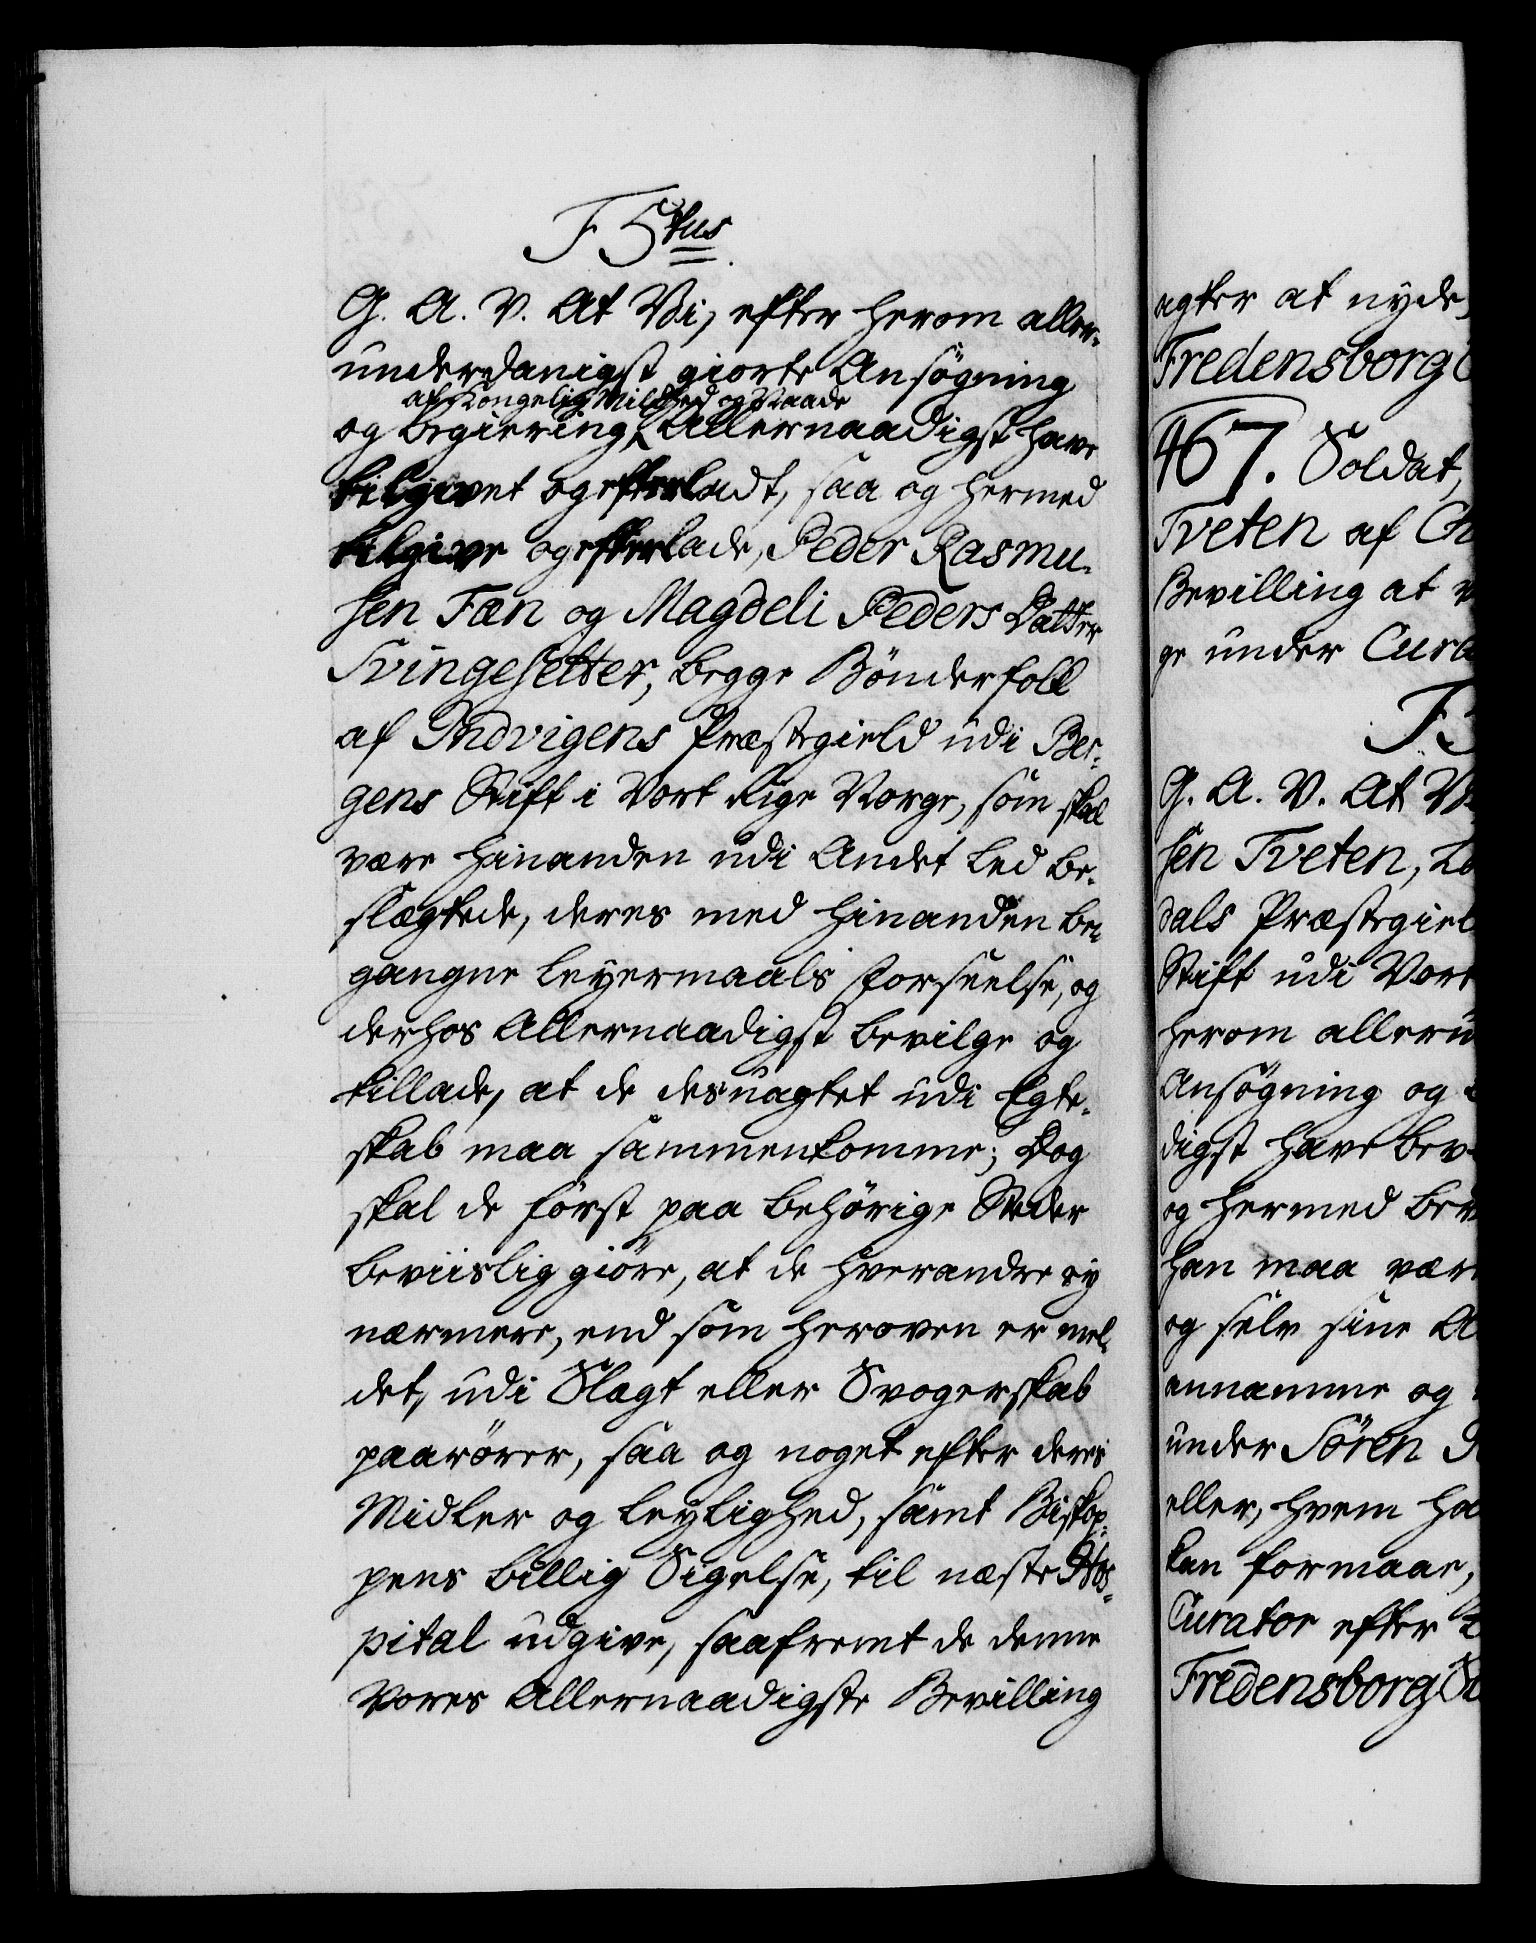 F 5tus.
G. A. V. At Vi, efter herom aller-
underdanigst giorte Ansøgning
af Kongelig Mildhed og Naade
og begiering, Allernaadigst have
tilgivet og efterladt, saa og hermed
tilgive og efterlade, Peder Rasmu-
sen Fæn og Magdeli Peders Datter
Svingesetter, begge Bönderfolk
af Indvigens Præstegield udi Ber-
gens Stift i Vort Rige Norge, som skal
være hinanden udi Andet Led be-
slægtede, deres med hinanden be-
gangne Leyermaals Forseelse, og
derhos Allernaadigst bevilge og
tillade, at de desuagtet udi Egte-
skab maa sammenkomme; Dog
skal de først paa behørige Steder
beviislig giøre, at de hverandre ey
nærmere, end som heroven er mel-
det, udi Slægt eller Svogerskab
paarører, saa og noget efter deres
Midler og Leylighed, samt Biskop-
pens billig Sigelse, til næste Hos-
pital udgive, saafremt de denne
Vores Allernaadigste Bevilling
agter at nyde,
Fredensborg
467. Soldat,
Tveten af Ch
Bevilling at v
ge under Cura
F5
G. A. V. At Vi
sen Tveten,
dals Præstegiel
Stift udi Vort
herom alleru
Ansøgning og
digst have bev
og hermed bev
han maa være
og selv sine
annamme og
under Sören
eller, hvem ha
kan formaae,
Curator efter
Fredensborg